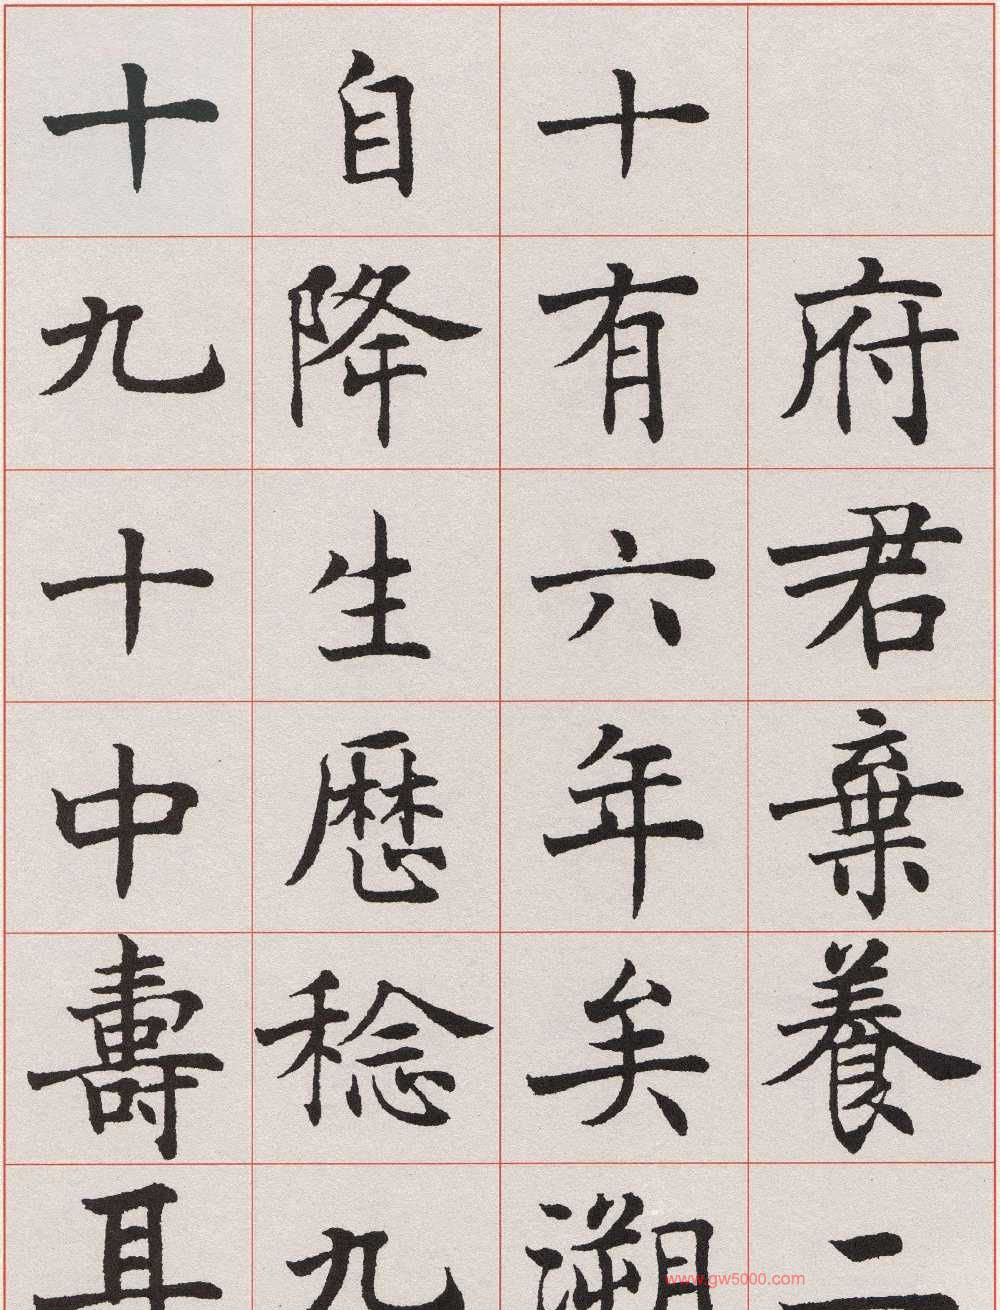 府君棄養二
十有六年矣溯
自降生歷稔九
十九十中壽耳
www.gw5000.com